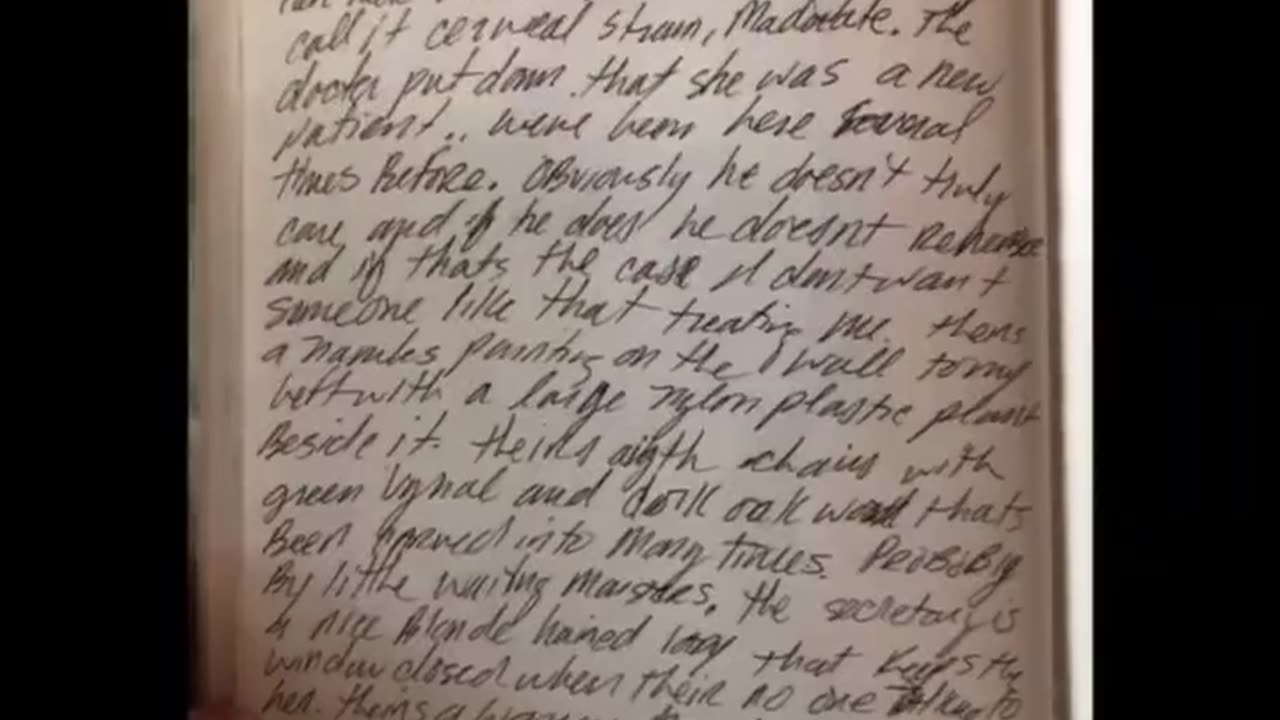 call it cerveal strain, Madorate. The
docter put down that she was a new
patient.. weve been here several
times Before. OBviously he doesn't truly
care and if he does he doesnt Remember
and if thats the case I dont want
someone like that treating me. thers
a painting on the wall to my
left with a large nylon plastic plant
Beside it. theirs chairs with
green and oak wood thats
Been into many times. ProBoBly
By little waiting. the secretary is
a nice Blonde haired lady that keeps the
window closed when their no one talking to
her. theirs a